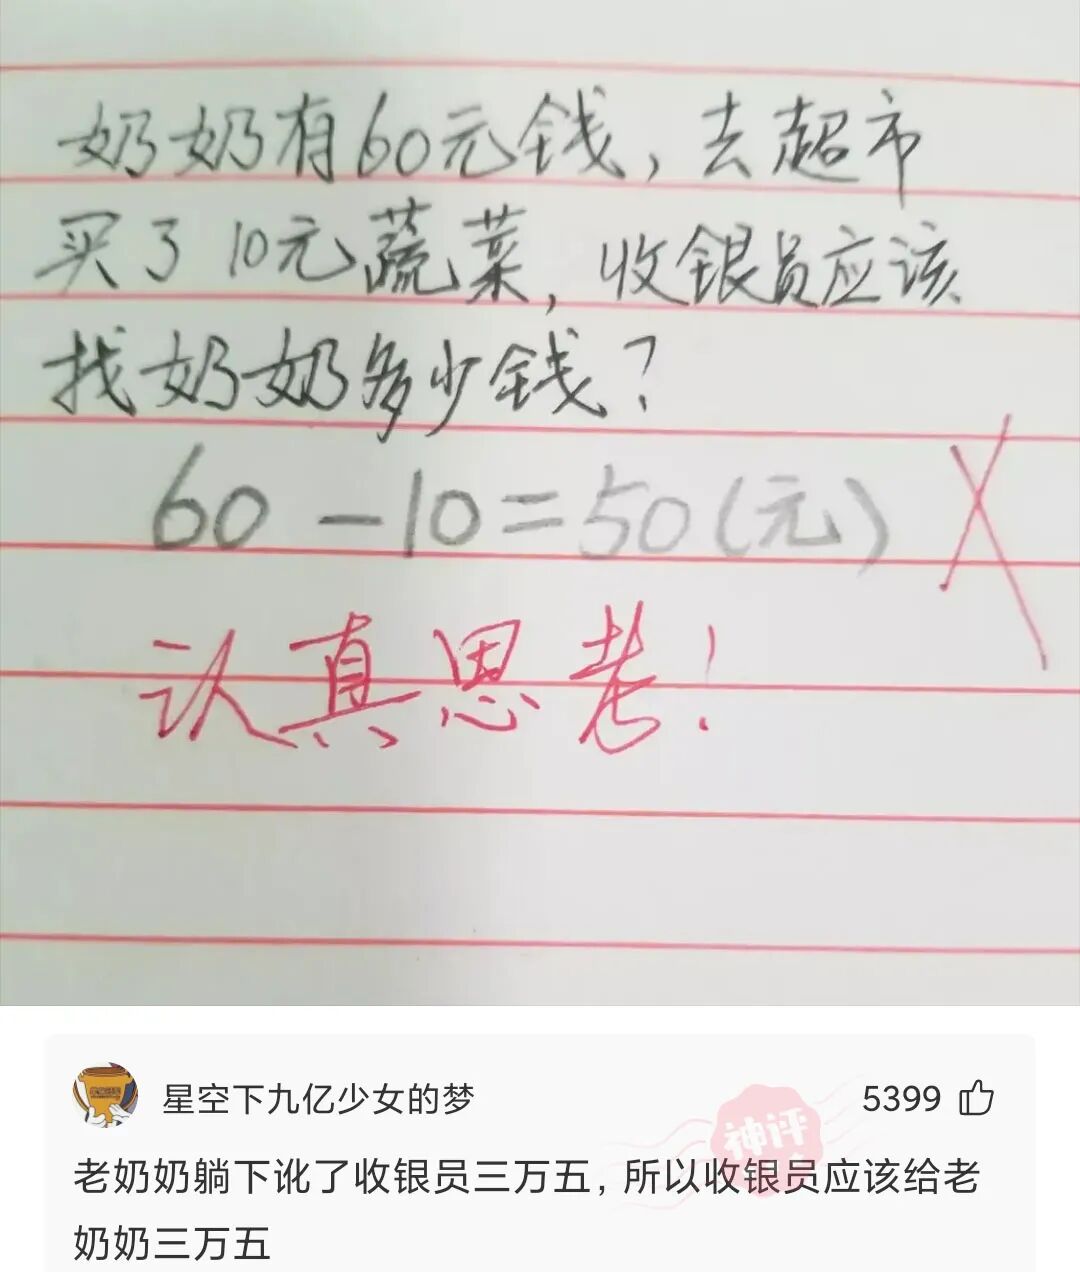 奶奶有60元钱，去超市
买了10元蔬菜，收银员应该
找奶奶多少钱？
60-10=50(元)
认真思考！
星空下九亿少女的梦
5399
神评
老奶奶躺下讹了收银员三万五，所以收银员应该给老
奶奶三万五